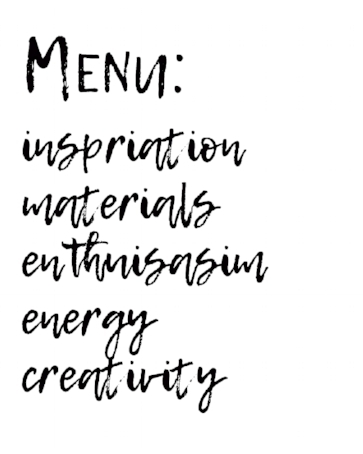 MENU:
inspriation
materials
enthnisasim
energy
creativity